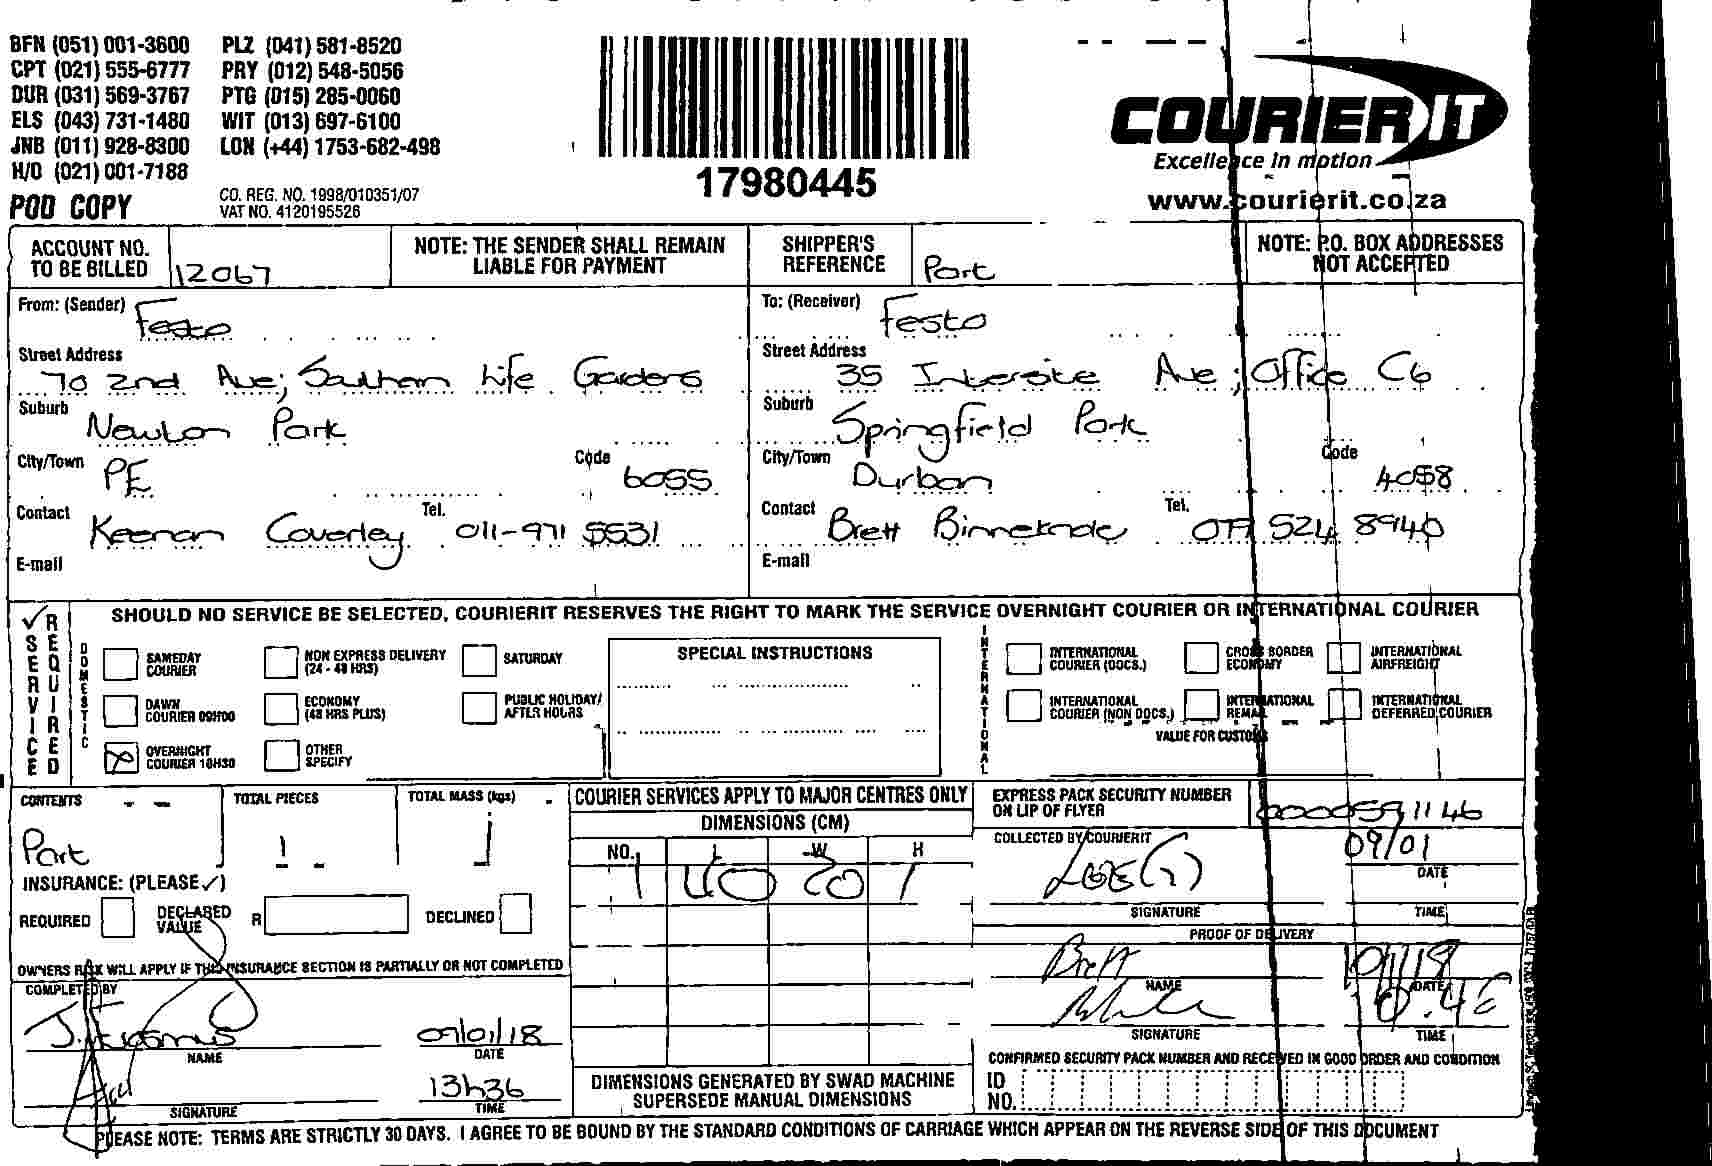 BFN (051) 001-3600 PLZ (041) 581-8520
CPT (021) 555-6777 PRY (012) 548-5056
DUR (031) 569-3767 PTG (015) 285-0060
ELS (043) 731-1480 WIT (013) 697-6100
JNB (011) 928-8300 LON (+44) 1753-682-498
H/O (021) 001-7188
POD COPY
CO. REG. NO. 1998/010351/07
VAT NO. 4120195526
17980445
COURIER IT
Excellence in motion
www.courierit.co.za
ACCOUNT NO. TO BE BILLED 12067
NOTE: THE SENDER SHALL REMAIN LIABLE FOR PAYMENT
SHIPPER'S REFERENCE Part
NOTE: P.O. BOX ADDRESSES NOT ACCEPTED
From: (Sender) Festo
Street Address 70 2nd Ave; Southern Life Gardens
Suburb Newton Park
City/Town PE Code 6055
Contact Keenan Coverley Tel. 011-971 5531
E-mail
To: (Receiver) Festo
Street Address 35 Intersite Ave; Office C6
Suburb Springfield Park
City/Town Durban Code 4058
Contact Brett Tel. 524 8940
E-mail
SERVICE REQUIRED
SHOULD NO SERVICE BE SELECTED, COURIERIT RESERVES THE RIGHT TO MARK THE SERVICE OVERNIGHT COURIER OR INTERNATIONAL COURIER
DOMESTIC
SAMEDAY COURIER
NON EXPRESS DELIVERY (24 - 48 HRS)
SATURDAY
DAWN COURIER 09H00
ECONOMY (48 HRS PLUS)
PUBLIC HOLIDAY/ AFTER HOURS
OVERNIGHT COURIER 10H30
OTHER SPECIFY
SPECIAL INSTRUCTIONS
INTERNATIONAL
INTERNATIONAL COURIER (DOCS.)
CROSS BORDER ECONOMY
INTERNATIONAL AIRFREIGHT
INTERNATIONAL COURIER (NON DOCS.)
INTERNATIONAL REMAIL
INTERNATIONAL DEFERRED COURIER
VALUE FOR CUSTOMS
CONTENTS Part
TOTAL PIECES 1
TOTAL MASS (kgs) 1
INSURANCE: (PLEASE ✓)
REQUIRED
DECLARED VALUE R
DECLINED
OWNERS RISK WILL APPLY IF THIS INSURANCE SECTION IS PARTIALLY OR NOT COMPLETED
COMPLETED BY
J. Erasmus 09/01/18
NAME DATE
13h36
SIGNATURE TIME
COURIER SERVICES APPLY TO MAJOR CENTRES ONLY
DIMENSIONS (CM)
NO. L W H
1 40 20 1
DIMENSIONS GENERATED BY SWAD MACHINE SUPERSEDE MANUAL DIMENSIONS
EXPRESS PACK SECURITY NUMBER ON LIP OF FLYER
COLLECTED BY COURIERIT 09/01
DATE
SIGNATURE TIME
PROOF OF DELIVERY
Brett
NAME DATE
SIGNATURE TIME
CONFIRMED SECURITY PACK NUMBER AND RECEIVED IN GOOD ORDER AND CONDITION
ID NO.
PLEASE NOTE: TERMS ARE STRICTLY 30 DAYS. I AGREE TO BE BOUND BY THE STANDARD CONDITIONS OF CARRIAGE WHICH APPEAR ON THE REVERSE SIDE OF THIS DOCUMENT